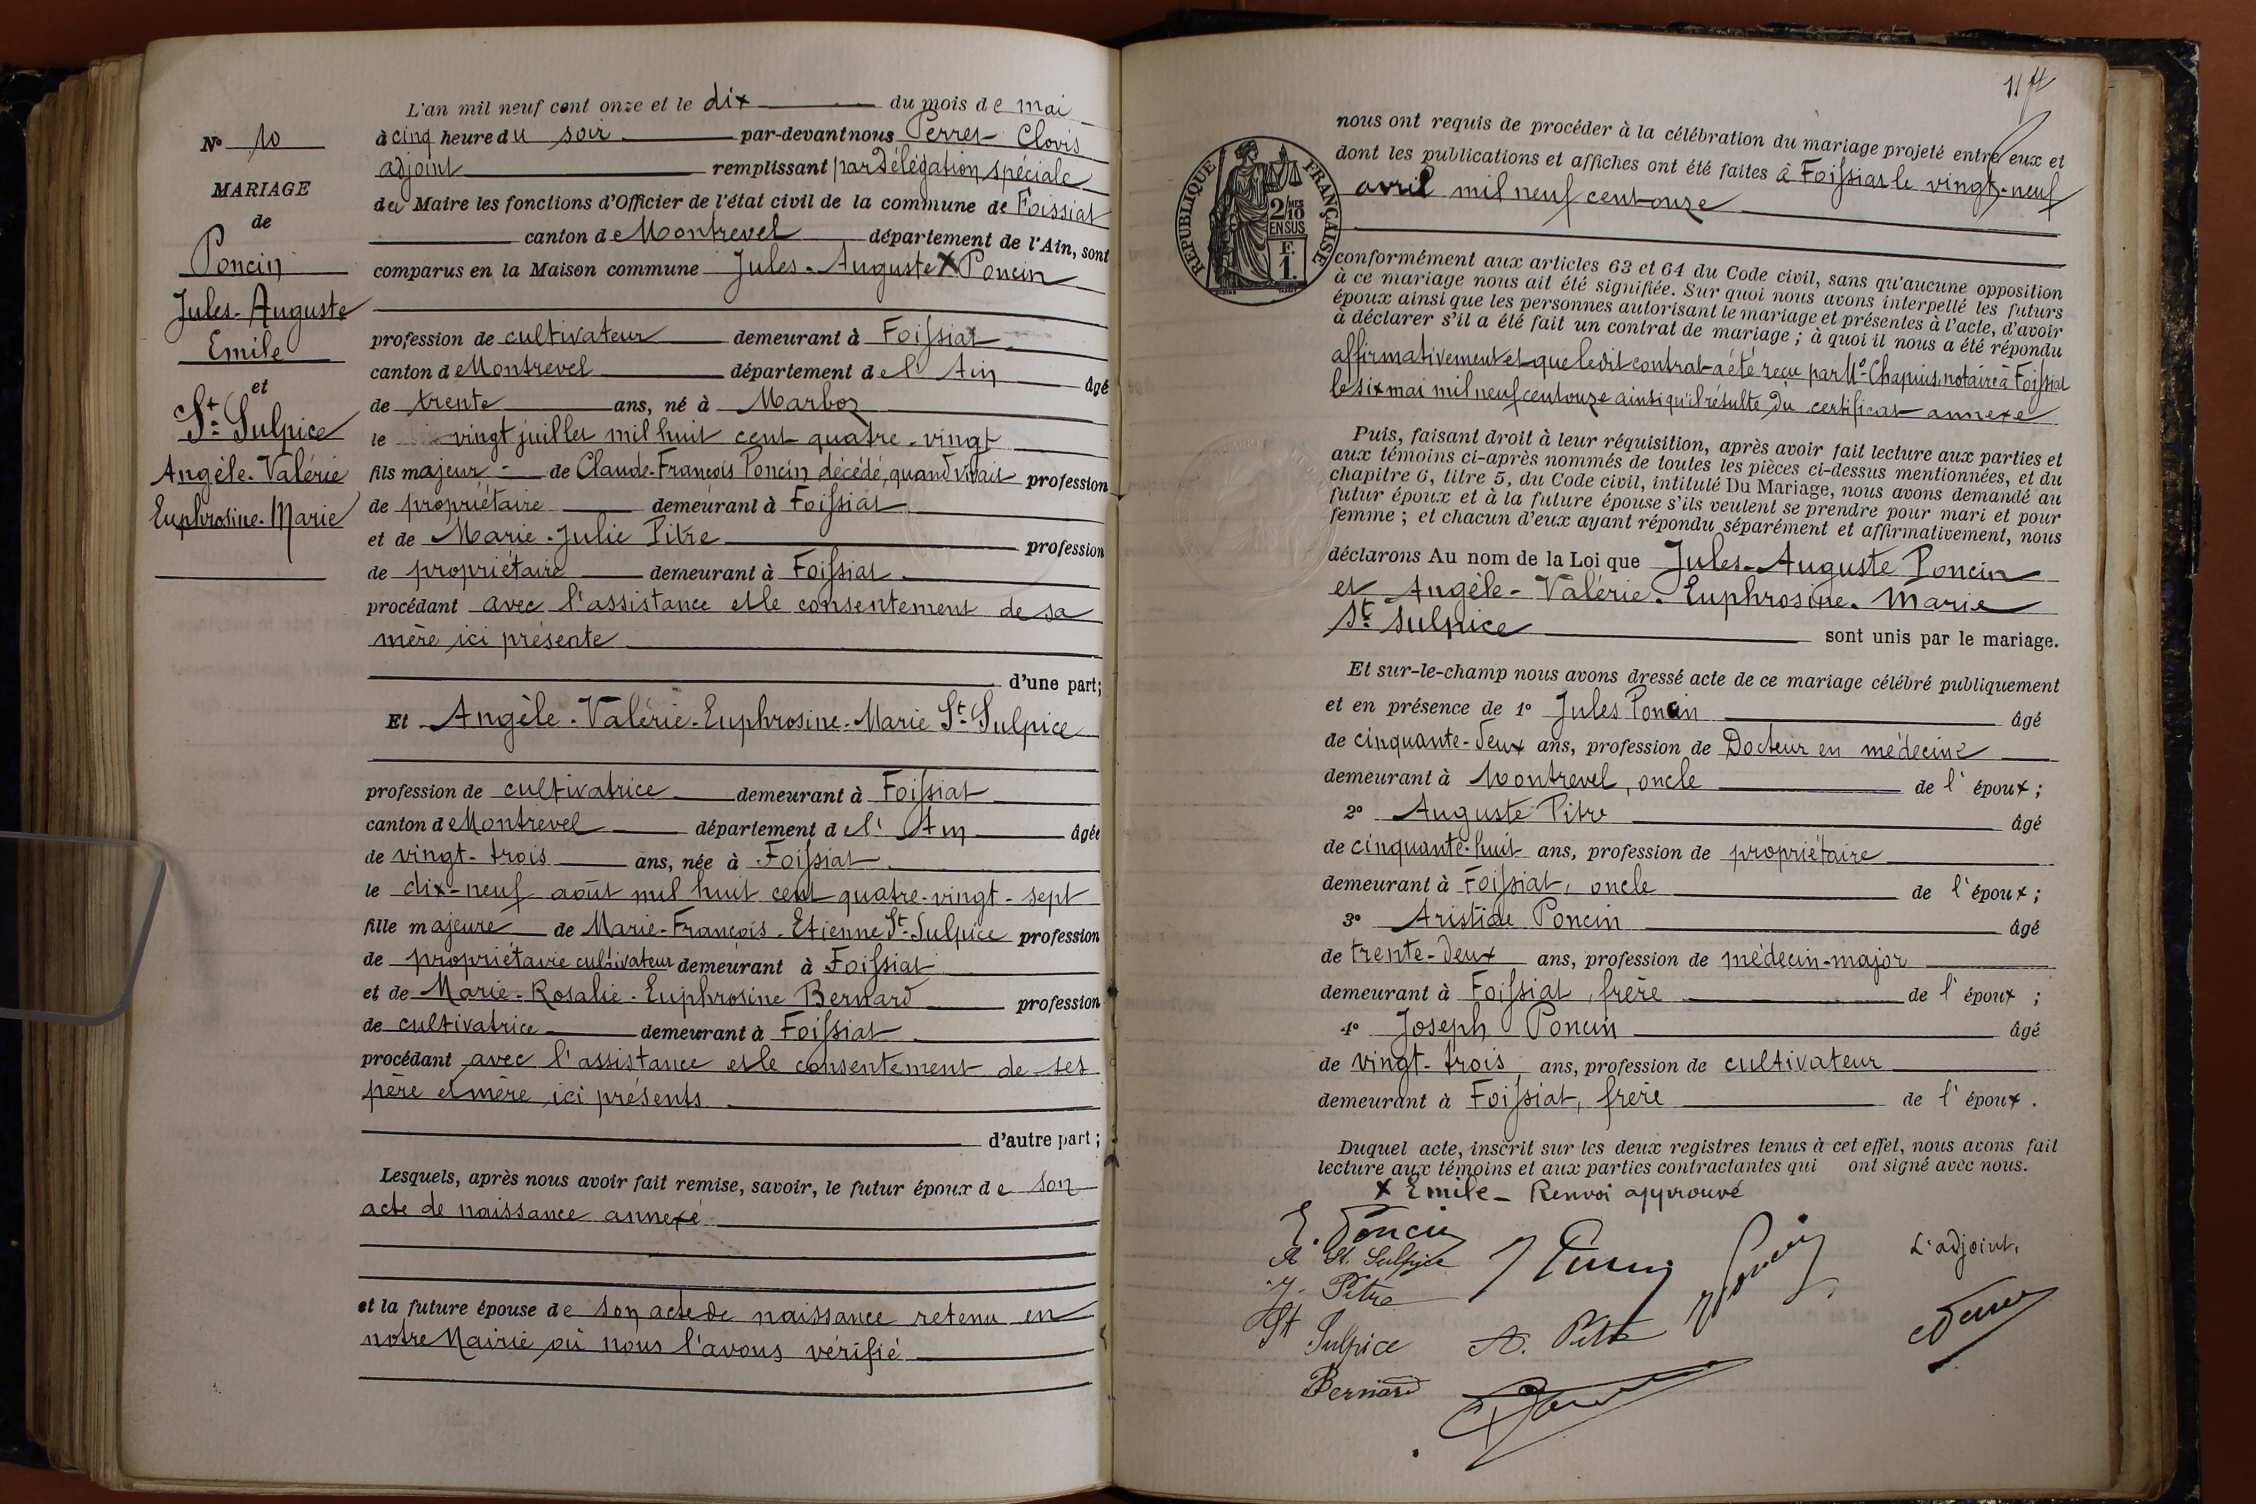 L'an mil neuf cent onze et le dix du mois de mai
à cinq heure du soir par-devant nous Perret Clovis
adjoint remplissant par Délégation spéciale
du Maire les fonctions d'Officier de l'état civil de la commune de Foissiat
canton de Montrevel département de l'Ain, sont
comparus en la Maison commune Jules-Auguste X Poncin
profession de cultivateur demeurant à Foissiat
canton de Montrevel département de l'Ain âgé
de trente ans, né à Marboz
le vingt juillet mil huit cent quatre-vingt
fils majeur de Claude-François Poncin décédé, quand vivait profession
de propriétaire demeurant à Foissiat
et de Marie-Julie Pitre profession
de propriétaire demeurant à Foissiat
procédant avec l'assistance et le consentement de sa
mère ici présente
d'une part;
Et Angèle-Valérie-Euphrosine-Marie St-Sulpice
profession de cultivatrice demeurant à Foissiat
canton de Montrevel département de l'Ain âgée
de vingt-trois ans, née à Foissiat
le dix-neuf août mil huit cent quatre-vingt-sept
fille majeure de Marie-François-Etienne St-Sulpice profession
de propriétaire cultivateur demeurant à Foissiat
et de Marie-Rosalie-Euphrosine Bernard profession
de cultivatrice demeurant à Foissiat
procédant avec l'assistance et le consentement de ses
père et mère ici présents
d'autre part;
Lesquels, après nous avoir fait remise, savoir, le futur époux de son
acte de naissance annexé
et la future épouse de son acte de naissance retenu en
notre Mairie où nous l'avons vérifié
No 10
MARIAGE
de
Poncin
Jules-Auguste
Emile
et
St-Sulpice
Angèle-Valérie
Euphrosine-Marie
nous ont requis de procéder à la célébration du mariage projeté entre eux et
dont les publications et affiches ont été faites à Foissiat le vingt-neuf
avril mil neuf cent onze
RÉPUBLIQUE FRANÇAISE
2/10 MES
EN SUS
F.
1.
conformément aux articles 63 et 64 du Code civil, sans qu'aucune opposition
à ce mariage nous ait été signifiée. Sur quoi nous avons interpellé les futurs
époux ainsi que les personnes autorisant le mariage et présentes à l'acte, d'avoir
à déclarer s'il a été fait un contrat de mariage; à quoi il nous a été répondu
affirmativement et que le dit contrat a été reçu par Me Chapuis, notaire à Foissiat
le six mai mil neuf cent onze ainsi qu'il résulte du certificat annexé
Puis, faisant droit à leur réquisition, après avoir fait lecture aux parties et
aux témoins ci-après nommés de toutes les pièces ci-dessus mentionnées, et du
chapitre 6, titre 5, du Code civil, intitulé Du Mariage, nous avons demandé au
futur époux et à la future épouse s'ils veulent se prendre pour mari et pour
femme; et chacun d'eux ayant répondu séparément et affirmativement, nous
déclarons Au nom de la Loi que Jules-Auguste Poncin
et Angèle-Valérie-Euphrosine-Marie
St-Sulpice sont unis par le mariage.
Et sur-le-champ nous avons dressé acte de ce mariage célébré publiquement
et en présence de 1° Jules Poncin âgé
de cinquante-deux ans, profession de Docteur en médecine
demeurant à Montrevel, oncle de l'époux;
2° Auguste Pitre âgé
de cinquante-huit ans, profession de propriétaire
demeurant à Foissiat, oncle de l'époux;
3° Aristide Poncin âgé
de trente-deux ans, profession de médecin-major
demeurant à Foissiat, frère de l'époux;
4° Joseph Poncin âgé
de vingt-trois ans, profession de cultivateur
demeurant à Foissiat, frère de l'époux.
Duquel acte, inscrit sur les deux registres tenus à cet effet, nous avons fait
lecture aux témoins et aux parties contractantes qui ont signé avec nous.
X Emile - Renvoi approuvé
E. Poncin
A St. Sulpice
J. Pitre
St Sulpice
A. Pitre
Bernard
L'adjoint,